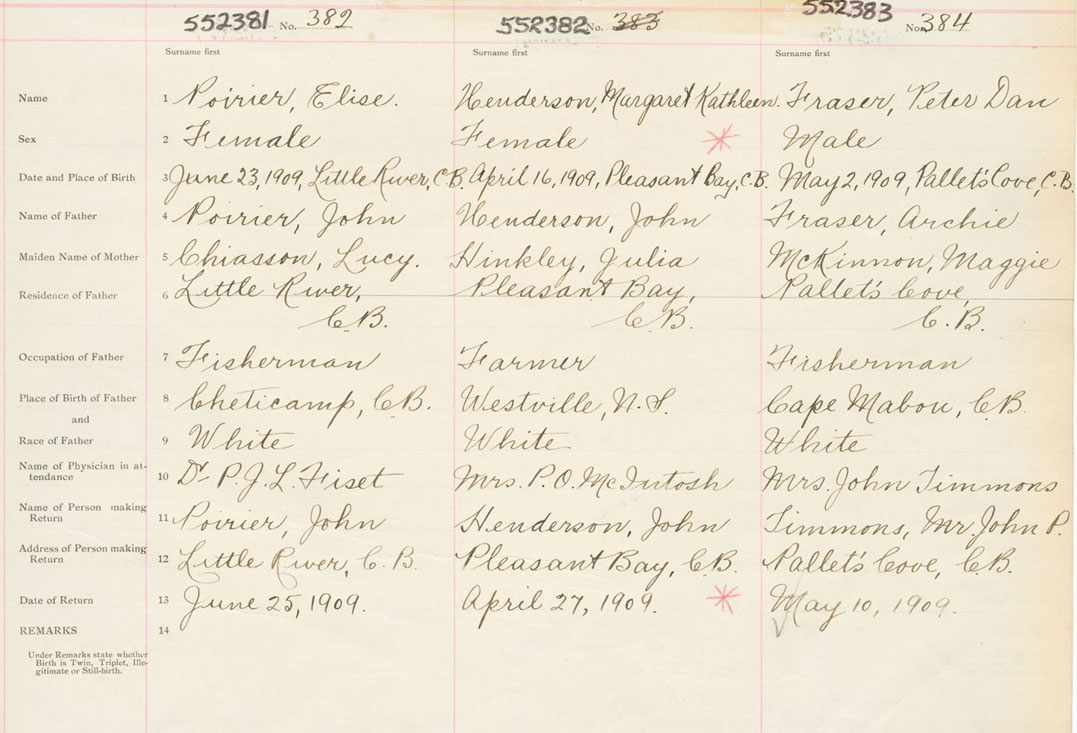 552381 No. 382 552382 No. 383 552383 No. 384
Surname first Surname first Surname first
Name 1 Poirier, Elise. Henderson, Margaret Kathleen. Fraser, Peter Dan
Sex 2 Female Female Male
Date and Place of Birth 3 June 23, 1909, Little River, C.B. April 16, 1909, Pleasant Bay, C.B. May 2, 1909, Pallet's Cove, C.B.
Name of Father 4 Poirier, John Henderson, John Fraser, Archie
Maiden Name of Mother 5 Chiasson, Lucy. Hinkley, Julia McKinnon, Maggie
Residence of Father 6 Little River, Pleasant Bay, Pallet's Cove,
C.B. C.B. C.B.
Occupation of Father 7 Fisherman Farmer Fisherman
Place of Birth of Father 8 Cheticamp, C.B. Westville, N.S. Cape Mabou, C.B.
and
Race of Father 9 White White White
Name of Physician in at-
tendance 10 Dr P. J. L. Fiset Mrs. P. O. McIntosh Mrs. John Timmons
Name of Person making
Return 11 Poirier, John Henderson, John Timmons, Mr. John P.
Address of Person making
Return 12 Little River, C.B. Pleasant Bay, C.B. Pallet's Cove, C.B.
Date of Return 13 June 25, 1909. April 27, 1909. May 10, 1909.
REMARKS 14
Under Remarks state whether
Birth is Twin, Triplet, Ille-
gitimate or Still-birth.